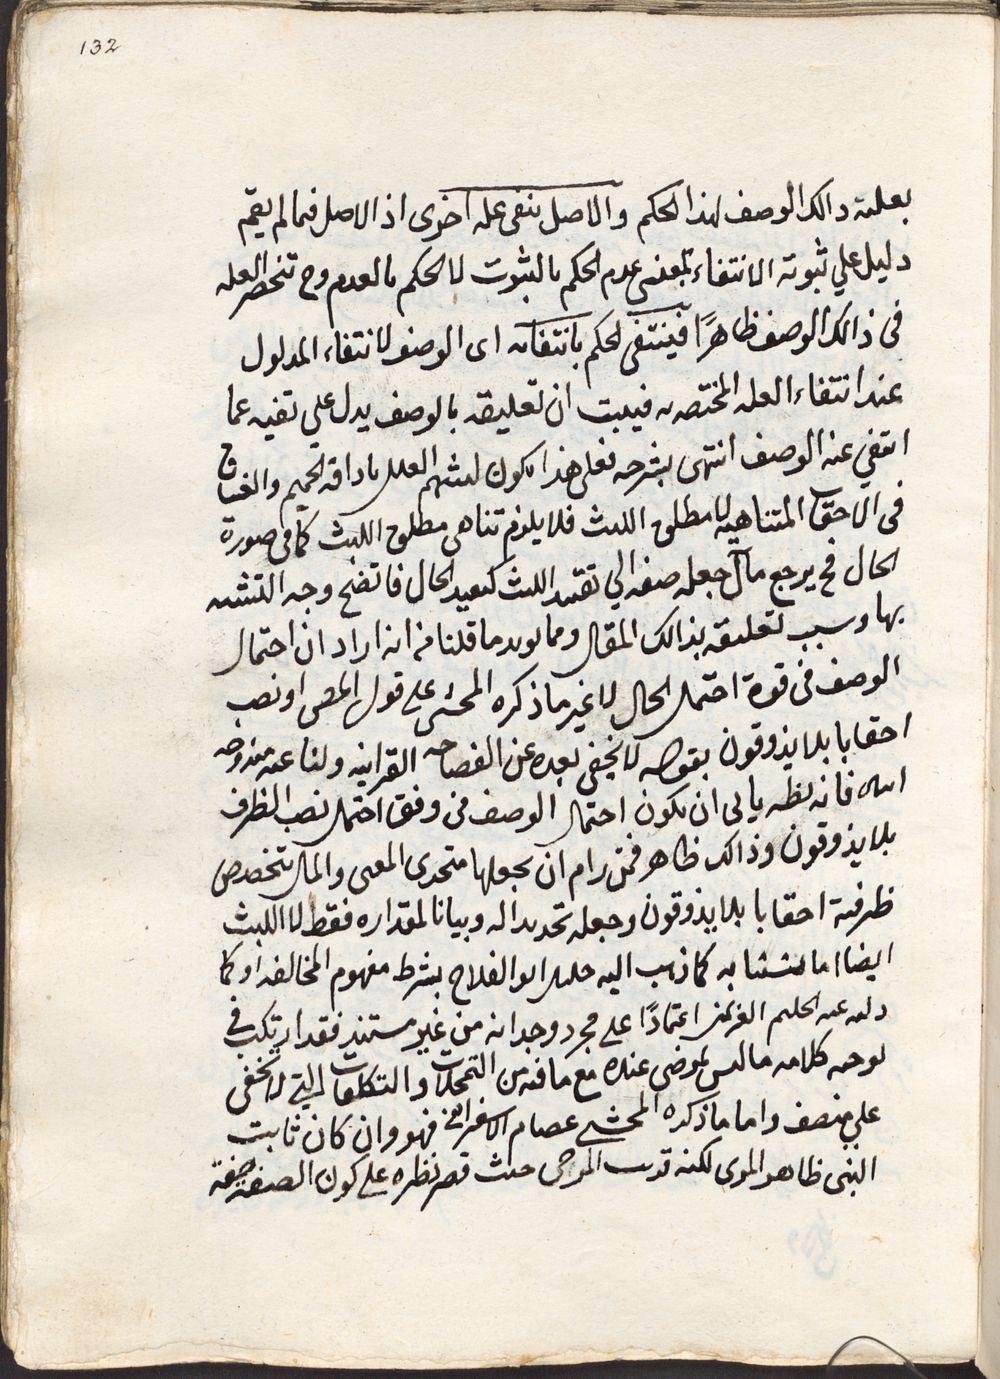 132
بعلية دالك الوصف لهذا الحكم والاصل ينفى علة اخرى اذ الاصل فيما لم يقم
دليل علي ثبوته الانتفاء بمعنى عدم الحكم بالثبوت لا الحكم بالعدم وح تنحصر العله
فى ذالك الوصف ظاهرًا فينتفى الحكم بانتفائه اى الوصف لانتفاء المدلول
عند انتفاء العله المختصه به فيثبت ان تعليقه بالوصف يدل علي نفيه عما
انتفي عنه الوصف انتهى بشرحه فعلى هذا يكون لبثهم المعلل باذاقة الحميم والغساق
فى الاحقاب المتناهيه لا مطلق اللبث فلا يلزم تناهى مطلق اللبث كما فى صورة
الحال فح يرجع مآل جعله صفه الي تقييد اللبث كتقييد الحال فاتضح وجه التشبيه
بها وسبب تعليقه بذالك المقال ومما يويد ما قلنا من انه اراد ان احتمال
الوصف فى قوة احتمال الحال لا غير ما ذكره المحشى على قول المص او نصب
احقابا بلا يذوقون بقوله لا يخفى بعده عن الفصاحه القرانيه ولنا عنه مندوحه
فانه يأبى ان يكون احتمال الوصف فى وفق احتمال نصب الظرف
بلا يذوقون وذالك ظاهر فمن رام ان يجعلها متحدى المعنى والمال بتخصيص
ظرفية احقابا بلا يذوقون وجعله تحديدا له وبيانا لمقداره فقط لا اللبث
ايضا اما كما ذهب اليه بشرط مفهوم المخالفه او كما
عبد الحليم اعتمادًا على مجرد وجدانه من غير مستند فقد ارتكب فى
توجيه كلامه ما ليس بمرضى عنده مع ما فيه من التمحلات والتكلفات التى لا تخفى
علي منصف واما ما ذكره المحشى عصام الاسفراينى فهو وان كان ثابت
البنى ظاهر لكنه حيث قصر نظره على كون الصفة صفة